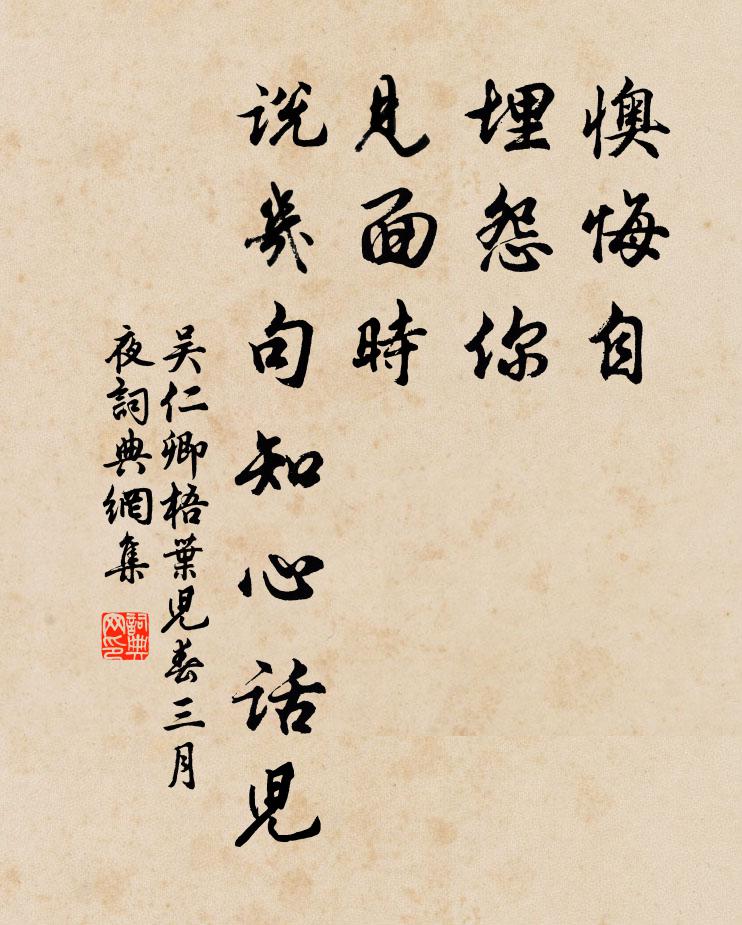 懊悔自
埋怨你
見面時
説幾句知心話兒
吳仁卿梧葉兒春三月
夜詞典網集
詞典
网印